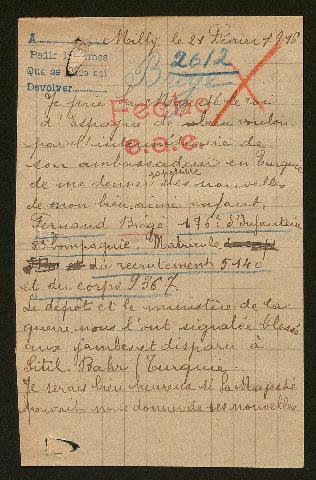 A
Milly le 21 Février 1916
Pedir informes
Que se dice asi
Devolver
2612
Brégé
Je prie Sa Majesté le roi
Fecho
d'Espagne de bien vouloir
par l'intermédiaire de
e.a.e.
son ambassadeur en Turquie
de me donner des nouvelles
de mon bien aimé enfant
Fernand Brégé 176e d'Infanterie
5e compagnie Matricule
du recrutement 5140
et du corps 9367.
Le dépôt et le ministère de la
guerre nous l'ont signalé blessé
aux jambes et disparu à
Sitil. Bahr (Turquie.
Je serais bien heureux si la Majesté
pouvait nous donner de ses nouvelles